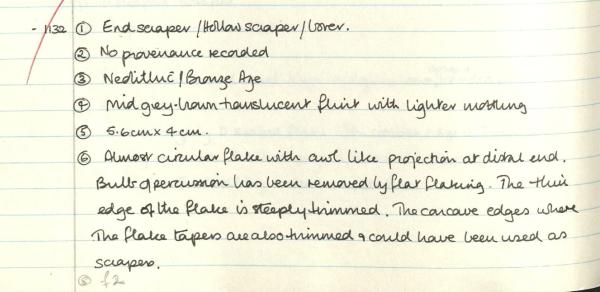 - 1132 ① End scraper / Hollow scraper / borer.
② No provenance recorded
③ Neolithic / Bronze Age
④ Mid grey-brown translucent flint with lighter mottling
⑤ 5.6cm x 4cm.
⑥ Almost circular flake with awl like projection at distal end.
Bulb of percussion has been removed by flat flaking. The thin
edge of the flake is steeply trimmed. The concave edges where
the flake tapers are also trimmed & could have been used as
scrapers.
⑧ f2